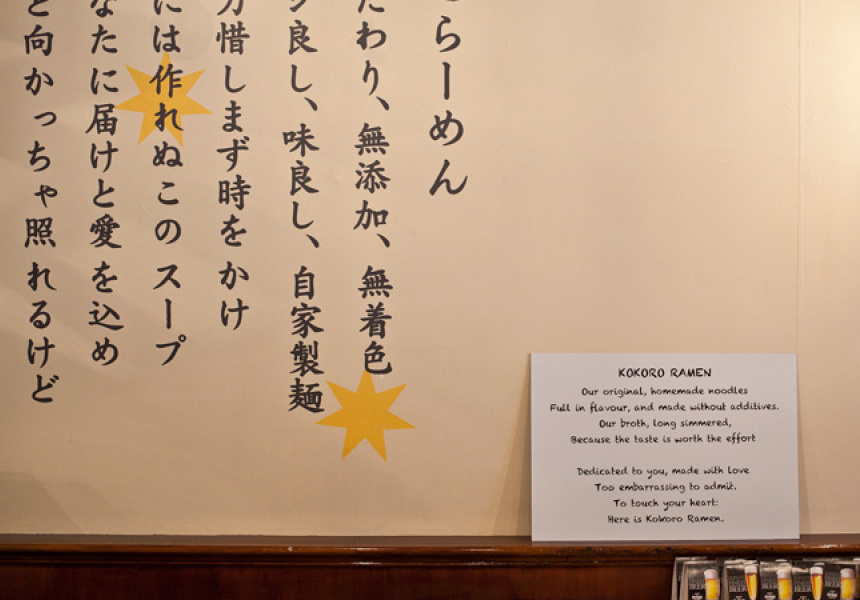 らーめん
たわり、無添加、無着色
良し、味良し、自家製麺
惜しまず時をかけ
には作れぬこのスープ
なたに届けと愛を込め
と向かっちゃ照れるけど
KOKORO RAMEN
Our original, homemade noodles
Full in flavour, and made without additives.
Our broth, long simmered,
Because the taste is worth the effort
Dedicated to you, made with love
Too embarrassing to admit.
To touch your heart:
Here is Kokoro Ramen.